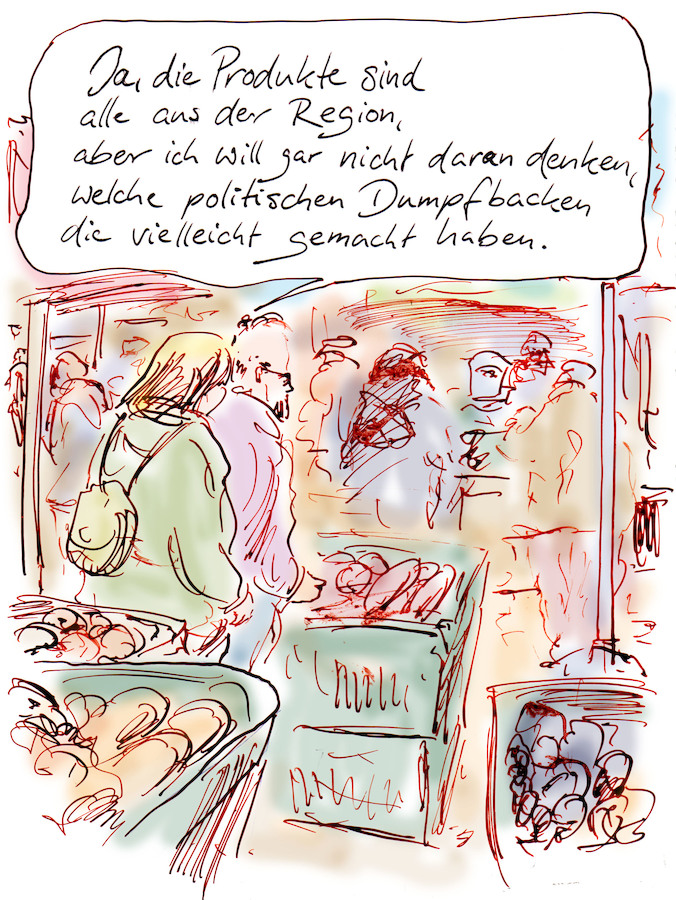 Ja, die Produkte sind
alle aus der Region,
aber ich will gar nicht daran denken,
welche politischen Dumpfbacken
die vielleicht gemacht haben.